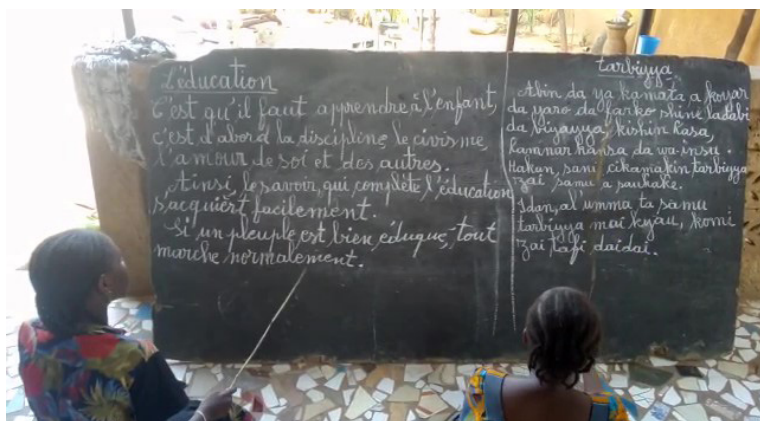 L'éducation
C'est qu'il faut apprendre à l'enfant,
c'est d'abord la discipline, le civisme,
l'amour de soi et des autres.
Ainsi, le savoir, qui complète l'éducation
s'acquiert facilement.
Si un pleuple est bien éduqué, tout
marche normalement.
tarbiyya
Abin da ya kamata a koyar
da yaro da farko shine ladabi
da biyayya, kishin kasa,
kamnar kansa da wa insu.
Hakan, sani cikamakin tarbiyya
zai samu a saukake.
Idan, al'umma ta samu
tarbiyya mai kyau, komi
zai tafi daidai.